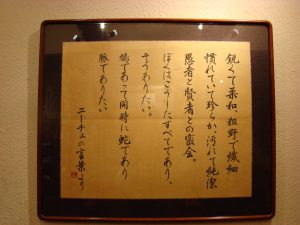 鋭くて柔和、粗野で繊細
慣れていて珍らか、汚れて純潔
愚者と賢者との密会。
ぼくはこうしたすべてであり、
そうありたい。
鳩であって同時に蛇であり
豚でありたい
ニーチェの言葉より